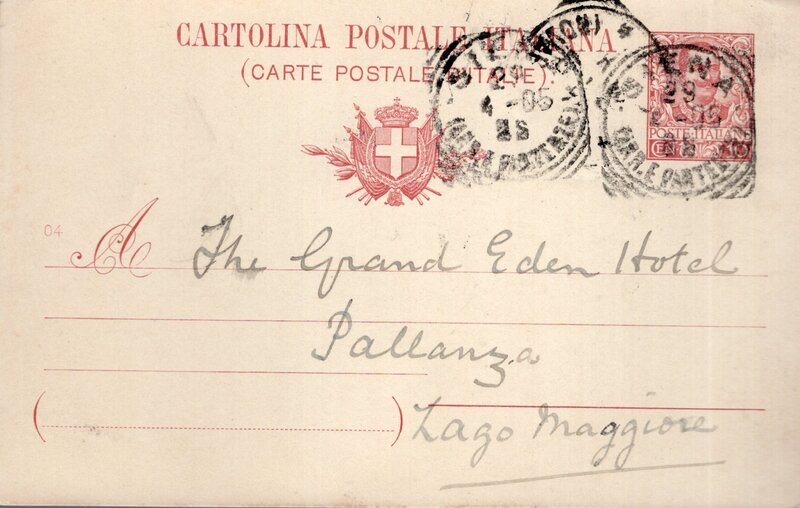 CARTOLINA POSTALE ITALIANA
(CARTE POSTALE D'ITALIE)
SIENA
29
4-05
SIENA
29
POSTE ITALIANE
04
A The Grand Eden Hotel
Pallanza
( ) Lago Maggiore